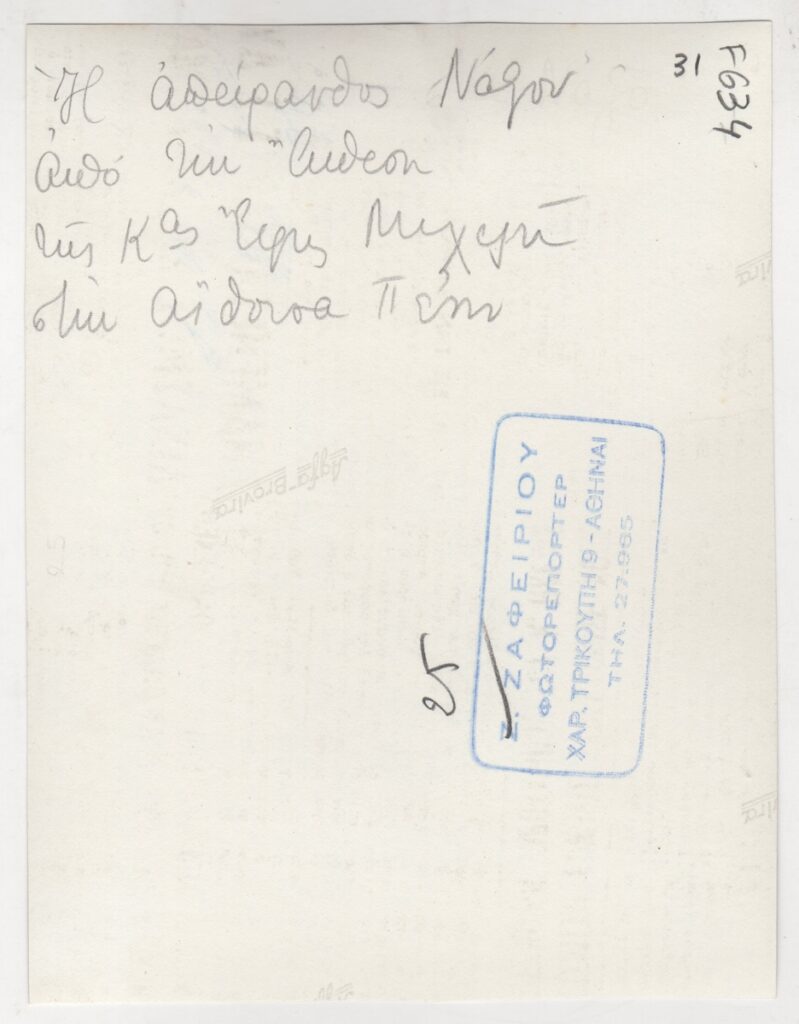 Ἡ ἀπείρανθος Νάξου
ἀπό τήν Ἔκθεση
τῆς Κας Ἔφης Μιχελῆ
στήν Αἴθουσα
31
F634
25
Σ. ΖΑΦΕΙΡΙΟΥ
ΦΩΤΟΡΕΠΟΡΤΕΡ
ΧΑΡ. ΤΡΙΚΟΥΠΗ 9 - ΑΘΗΝΑΙ
ΤΗΛ. 27.965
Agfa-Brovira